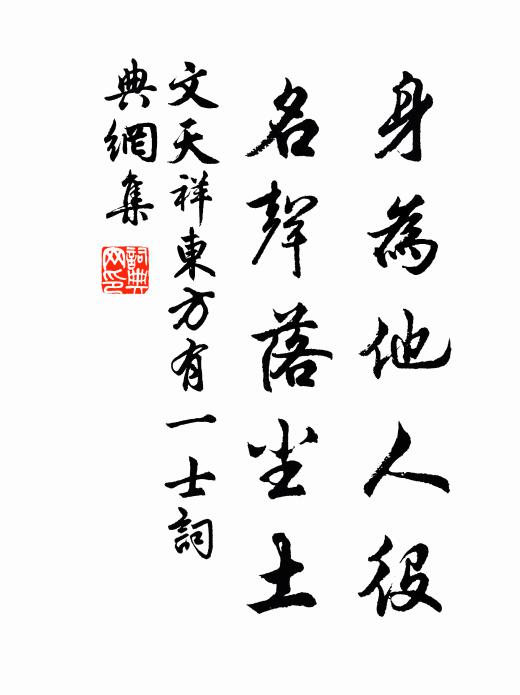 身為他人役
名聲落塵土
文天祥東方有一士詞
典網集
詞典
网印